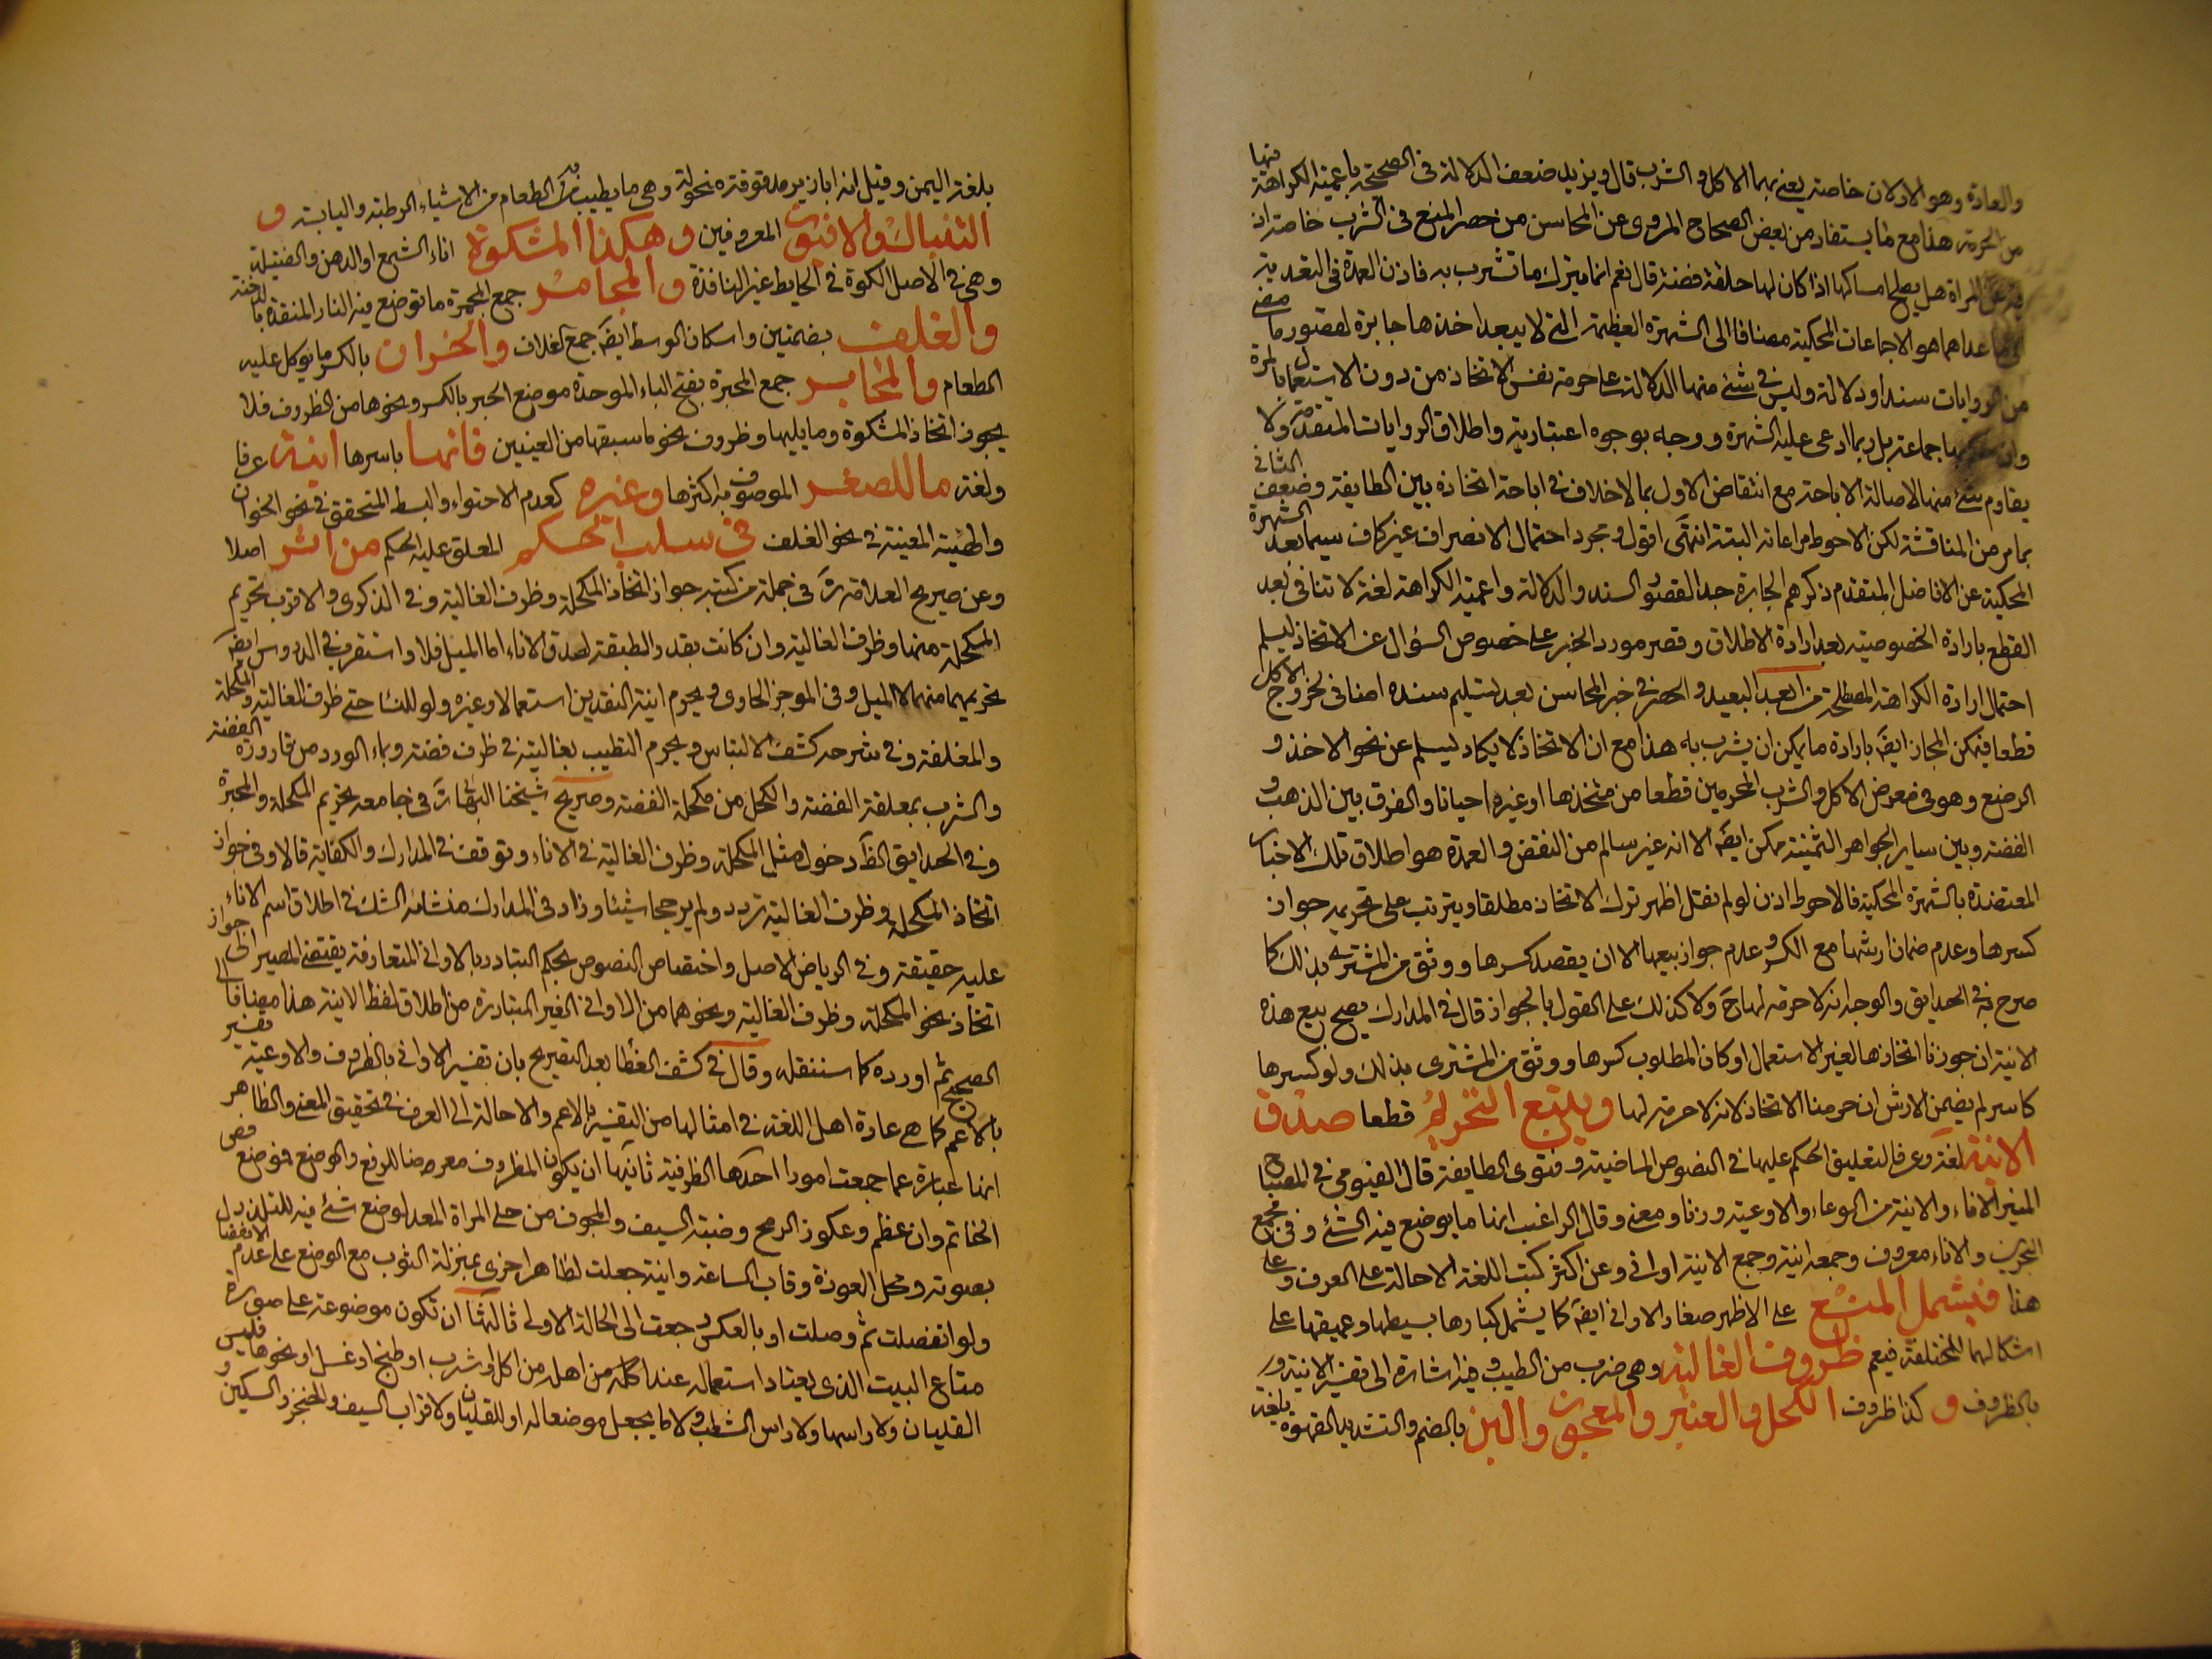 والعادة وهو الاولان خاصته يعنى بهما الاكل والشرب قال ويزيد ضعف الدلالة فى الصحيحة باعمية الكراهة فيها
من الحرمة هذا مع ما يستفاد من بعض الصحاح المروى عن المحاسن من حصر المنع فى الشرب خاصته اذ
فيه عن المراة هل يصلح امساكها اذا كان لها حلقة فضة قال نعم انما يترك ما تشرب به فاذن العمدة فى التعدية
الى ما عداهما هو الاجماعات المحكية مضافا الى الشهرة العظيمة التى لا يبعد اخذها جابرة لقصور ما مضى
من الروايات سندا ودلالة وليس فى شئ منها الدلالة على حرمة نفس الاتخاذ من دون الاستعمال بالمرة
وان جماعة بل ربما ادعى عليه الشهرة ووجه بوجوه اعتبارية واطلاق الروايات المتقدمة ولا
يقاوم شئ منها لاصالة الاباحة مع انتقاض الاول بما لاخلاف فى اباحة اتخاذه بين الطايفة وضعف الثانى
بما مر من المناقشة لكن الاحوط مراعاته البتة انتهى اقول ومجرد احتمال الانصراف غير كاف سيما بعد الشهرة
المحكية عن الافاضل المتقدم ذكرهم الجابرة جدا لقصور السند والدلالة واعمية الكراهة لغة لا تنافى بعد
القطع بارادة الخصوصية بعد ارادة الاطلاق وقصر مورد الخبر على خصوص السؤال عن الاتخاذ ليسلم
احتمال ارادة الكراهة المصطلحة من البعد البعيد والحصر فى خبر المحاسن بعد تسليم سنده اضافى لخروج الاكل
قطعا فيمكن المجاز ايضا بارادة ما يمكن ان يشرب به هذا مع ان الاتخاذ لا يكاد ليسلم عن نحو الاخذ و
الوضع وهو فى معرض الاكل والشرب المحرمين قطعا من متخذها او غيره احيانا والفرق بين الذهب و
الفضة وبين ساير الجواهر الثمينة ممكن ايضا الا انه غير سالم من النقض والعمدة هو اطلاق تلك الاخبار
المعتضدة بالشهرة المحكية فالاحوط اذن لو لم نقل اظهر ترك الاتخاذ مطلقا ويترتب على تحريمه جواز
كسرها وعدم ضمان ارشها مع الكسر وعدم جواز بيعها الا ان يقصد كسرها ووثق من المشترى بذلك كما
صرح به فى الحدايق والوجه انه لا حرمة لها ح ولا كذلك على القول بالجواز قال فى المدارك يصح بيع هذه
الانية ان جوزنا اتخاذها لغير الاستعمال او كان المطلوب كسرها ووثق من المشترى بذلك ولو كسرها
كاسر لم يضمن الارش ان حرمنا الاتخاذ لانه لا حرمة لها ويتبع التحريم قطعا صدق
الانية لغة وعرفا لتعليق الحكم عليها فى النصوص الماضية وفتوى الطايفة قال الفيومى فى المصباح
المنير الاناء والانية من الوعاء والاوعية وزنا ومعنى وقال الراغب انها ما يوضع فيه الشئ وفى مجمع
البحرين والاناء معروف وجمعه انية وجمع الانية اوانى وعن اكثر كتب اللغة الاحالة على العرف وعلى
هذا فيشمل المنع على الاظهر صغار الاوانى ايضا كما يشمل كبارها بسيطها وعميقها على
اشكالها المختلفة فيعم ظروف الغالية وهى ضرب من الطيب وفيه اشارة الى تفسير الانية
بالظروف و كذا ظروف الكحل والعنبر والمعجون والبن بالضم والتشديد القهوة بلغة
بلغة اليمن وقيل انه ابازير مدقوقة ونحو وهى ما يطيب به الطعام من الاشياء الرطبة واليابسة و
التنباك والافيون المعروفين وهكذا المشكوة اناء الشمع او الدهن والفتيلة
وهى فى الاصل الكوة فى الحايط غير النافذة والمجامر جمع المجمرة ما توضع فيه النار المتقدة
والغلف بضمتين واسكان الوسط ايضا جمع لغلاف والخوان بالكسر ما يوكل عليه
الطعام والمحابر جمع المحبرة بفتح الباء الموحدة موضع الحبر بالكسر ونحوها من الظروف فلا
يجوز اتخاذ المشكوة وما يليها وظروف نحو ما سبقها من العينين فانها باسرها انية عرفا
ولغة ما للصغر الموصوف به اكثرها وغيره كعدم الاحتواء والبسط المتحقق فى نحو الخوان
والهيئة المعينة فى نحو الغلف فى سلب الحكم المعلق عليه الحكم من اثر اصلا
وعن صريح العلامة فى جملة من كتبه جواز اتخاذ المكحلة وظرف الغالية وفى الذكرى والاقرب تحريم
المكحلة منها وظرف الغالية وان كانت بقدر الطبقة لصدق الاناء اما الميل فلا واستقرب فى الدروس ايضا
تحريمهما منهما لا الميل وفى الموجز الحاوى ويحرم انية النقدين استعمالا وغيره ولو للنساء حتى ظرف الغالية والمكحلة
والمغلفة وفى شرحه كشف الالتباس ويحرم التطيب بغالية فى ظرف فضة وبماء الورد من قارورة الفضة
والشرب بمعلقة الفضة والكحل من مكحلة الفضة وصريح شيخنا البهائى فى جامعه تحريم المكحلة والمحبرة
وفى الحدايق الظاهر دخول مثل المكحلة وظرف الغالية فى الاناء وتوقف فى المدارك والكفاية قالا وفى جواز
اتخاذ المكحلة وظرف الغالية تردد ولم يرجحا شيئا وزاد فى المدارك منشائه الشك فى اطلاق اسم الاناء
عليه حقيقة وفى الرياض الاصل واختصاص النصوص بحكم التبادر بالاوانى المتعارفة يقتضى المصير الى جواز
اتخاذ نحو المكحلة وظرف الغالية ونحوهما من الاوانى الغير المتبادرة من اطلاق لفظ الانية هذا مضافا الى
الصحيح ثم اورده كما سننقله وقال فى كشف الغطا بعد التصريح بان تفسير الاوانى بالظروف والاوعية تفسير
بالاعم كما هى عادة اهل اللغة فى امثالها من التفسير بالاعم والاحالة الى العرف فى تحقيق المعنى والظاهر
انها عبارة عما جمعت امورا احدها الظرفية ثانيها ان يكون المظروف معرضا للرفع والوضع فموضع فص
الخاتم وان عظم وعكوز الرمح وضبة السيف والمجوف من حلى المراة المعد لوضع شئ فيه للتلذذ
بصوته ومحل العوذة وقاب الساعة وانية جعلت لظاهر اخرى بمنزلة الثوب مع الوضع على عدم الانفصال
ولو انفصلت ثم وصلت او بالعكس رجعت الى الحالة الاولى ثالثها ان تكون موضوعة على صورة
متاع البيت الذى يعتاد استعماله عند اهله من اكل او شرب او طبخ او غسل او نحوها فليس
القليان ولا راسها ولا راس الشطب ولا ما يجعل موضعا له او للقليان ولا قراب السيف والخنجر والسكين